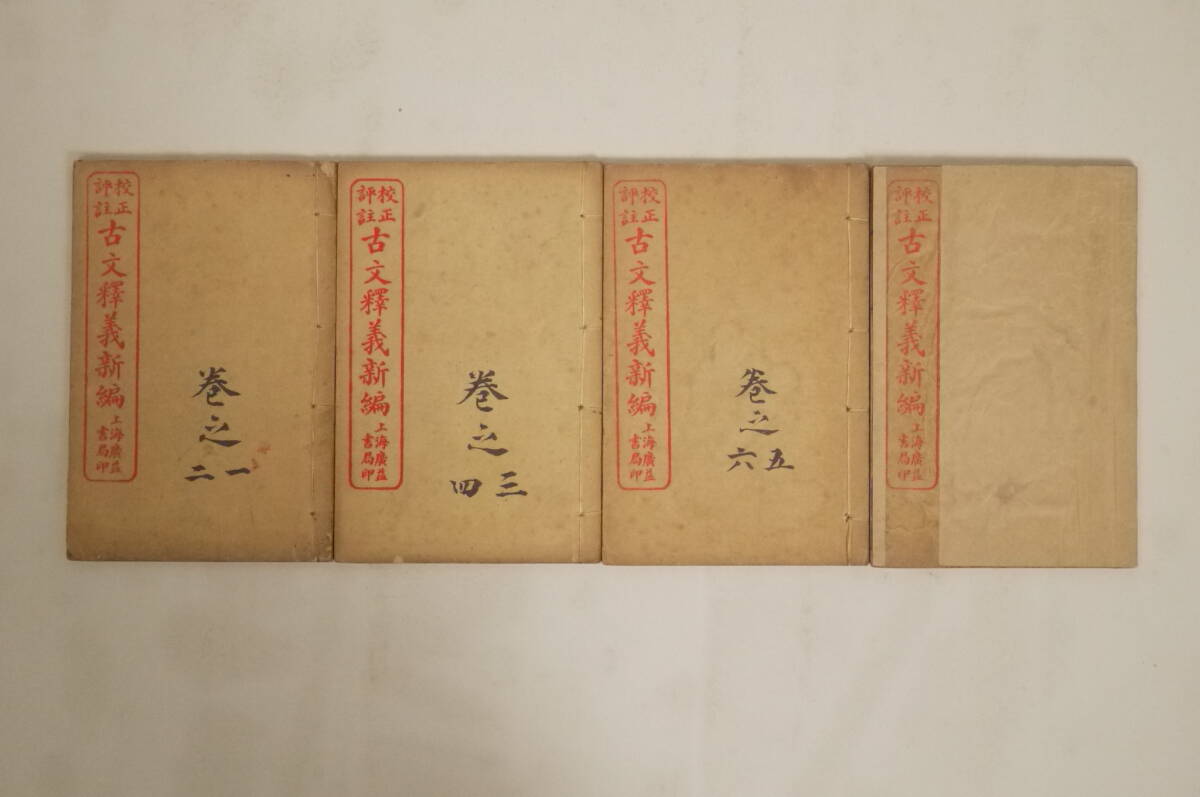 校正
評註
古文釋義新編
上海廣益
書局印
卷之
一
二
校正
評註
古文釋義新編
上海廣益
書局印
卷之
三
四
校正
評註
古文釋義新編
上海廣益
書局印
卷之
五
六
校正
評註
古文釋義新編
上海廣益
書局印